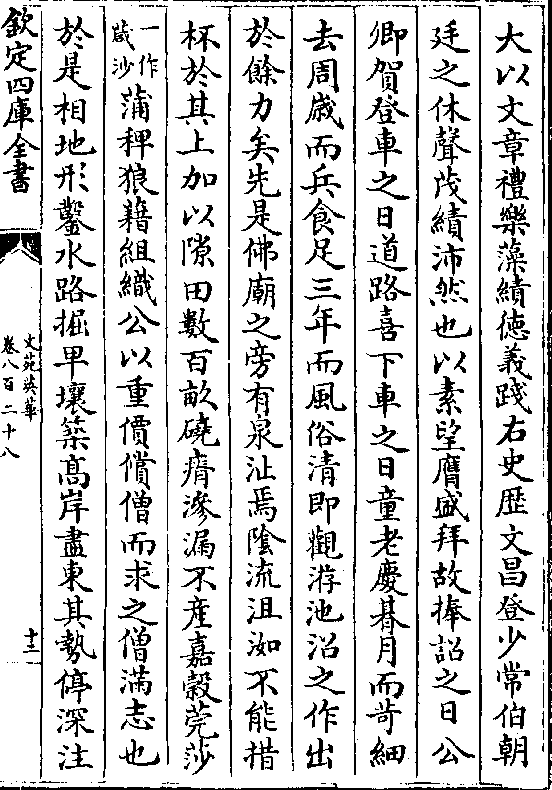 大以文章禮樂藻繢徳義踐右史歴文昌登少常伯朝
廷之休聲茂績沛然也以素望膺盛拜故捧詔之日公
卿賀登車之日道路喜下車之日童老慶朞月而苛細
去周嵗而兵食足三年而風俗清即觀游池沼之作出
於餘力矣先是佛廟之旁有泉沚焉陰流沮洳不能措
杯於其上加以隙田數百畝磽瘠滲漏不産嘉穀莞莎
一作
葴沙蒲稗狼藉組織公以重價償僧而求之僧滿志也
於是相地形鑿水路掘早壤築髙岸盡東其勢停深注
欽定四庫全書
文苑英華
卷八百二十八
十三